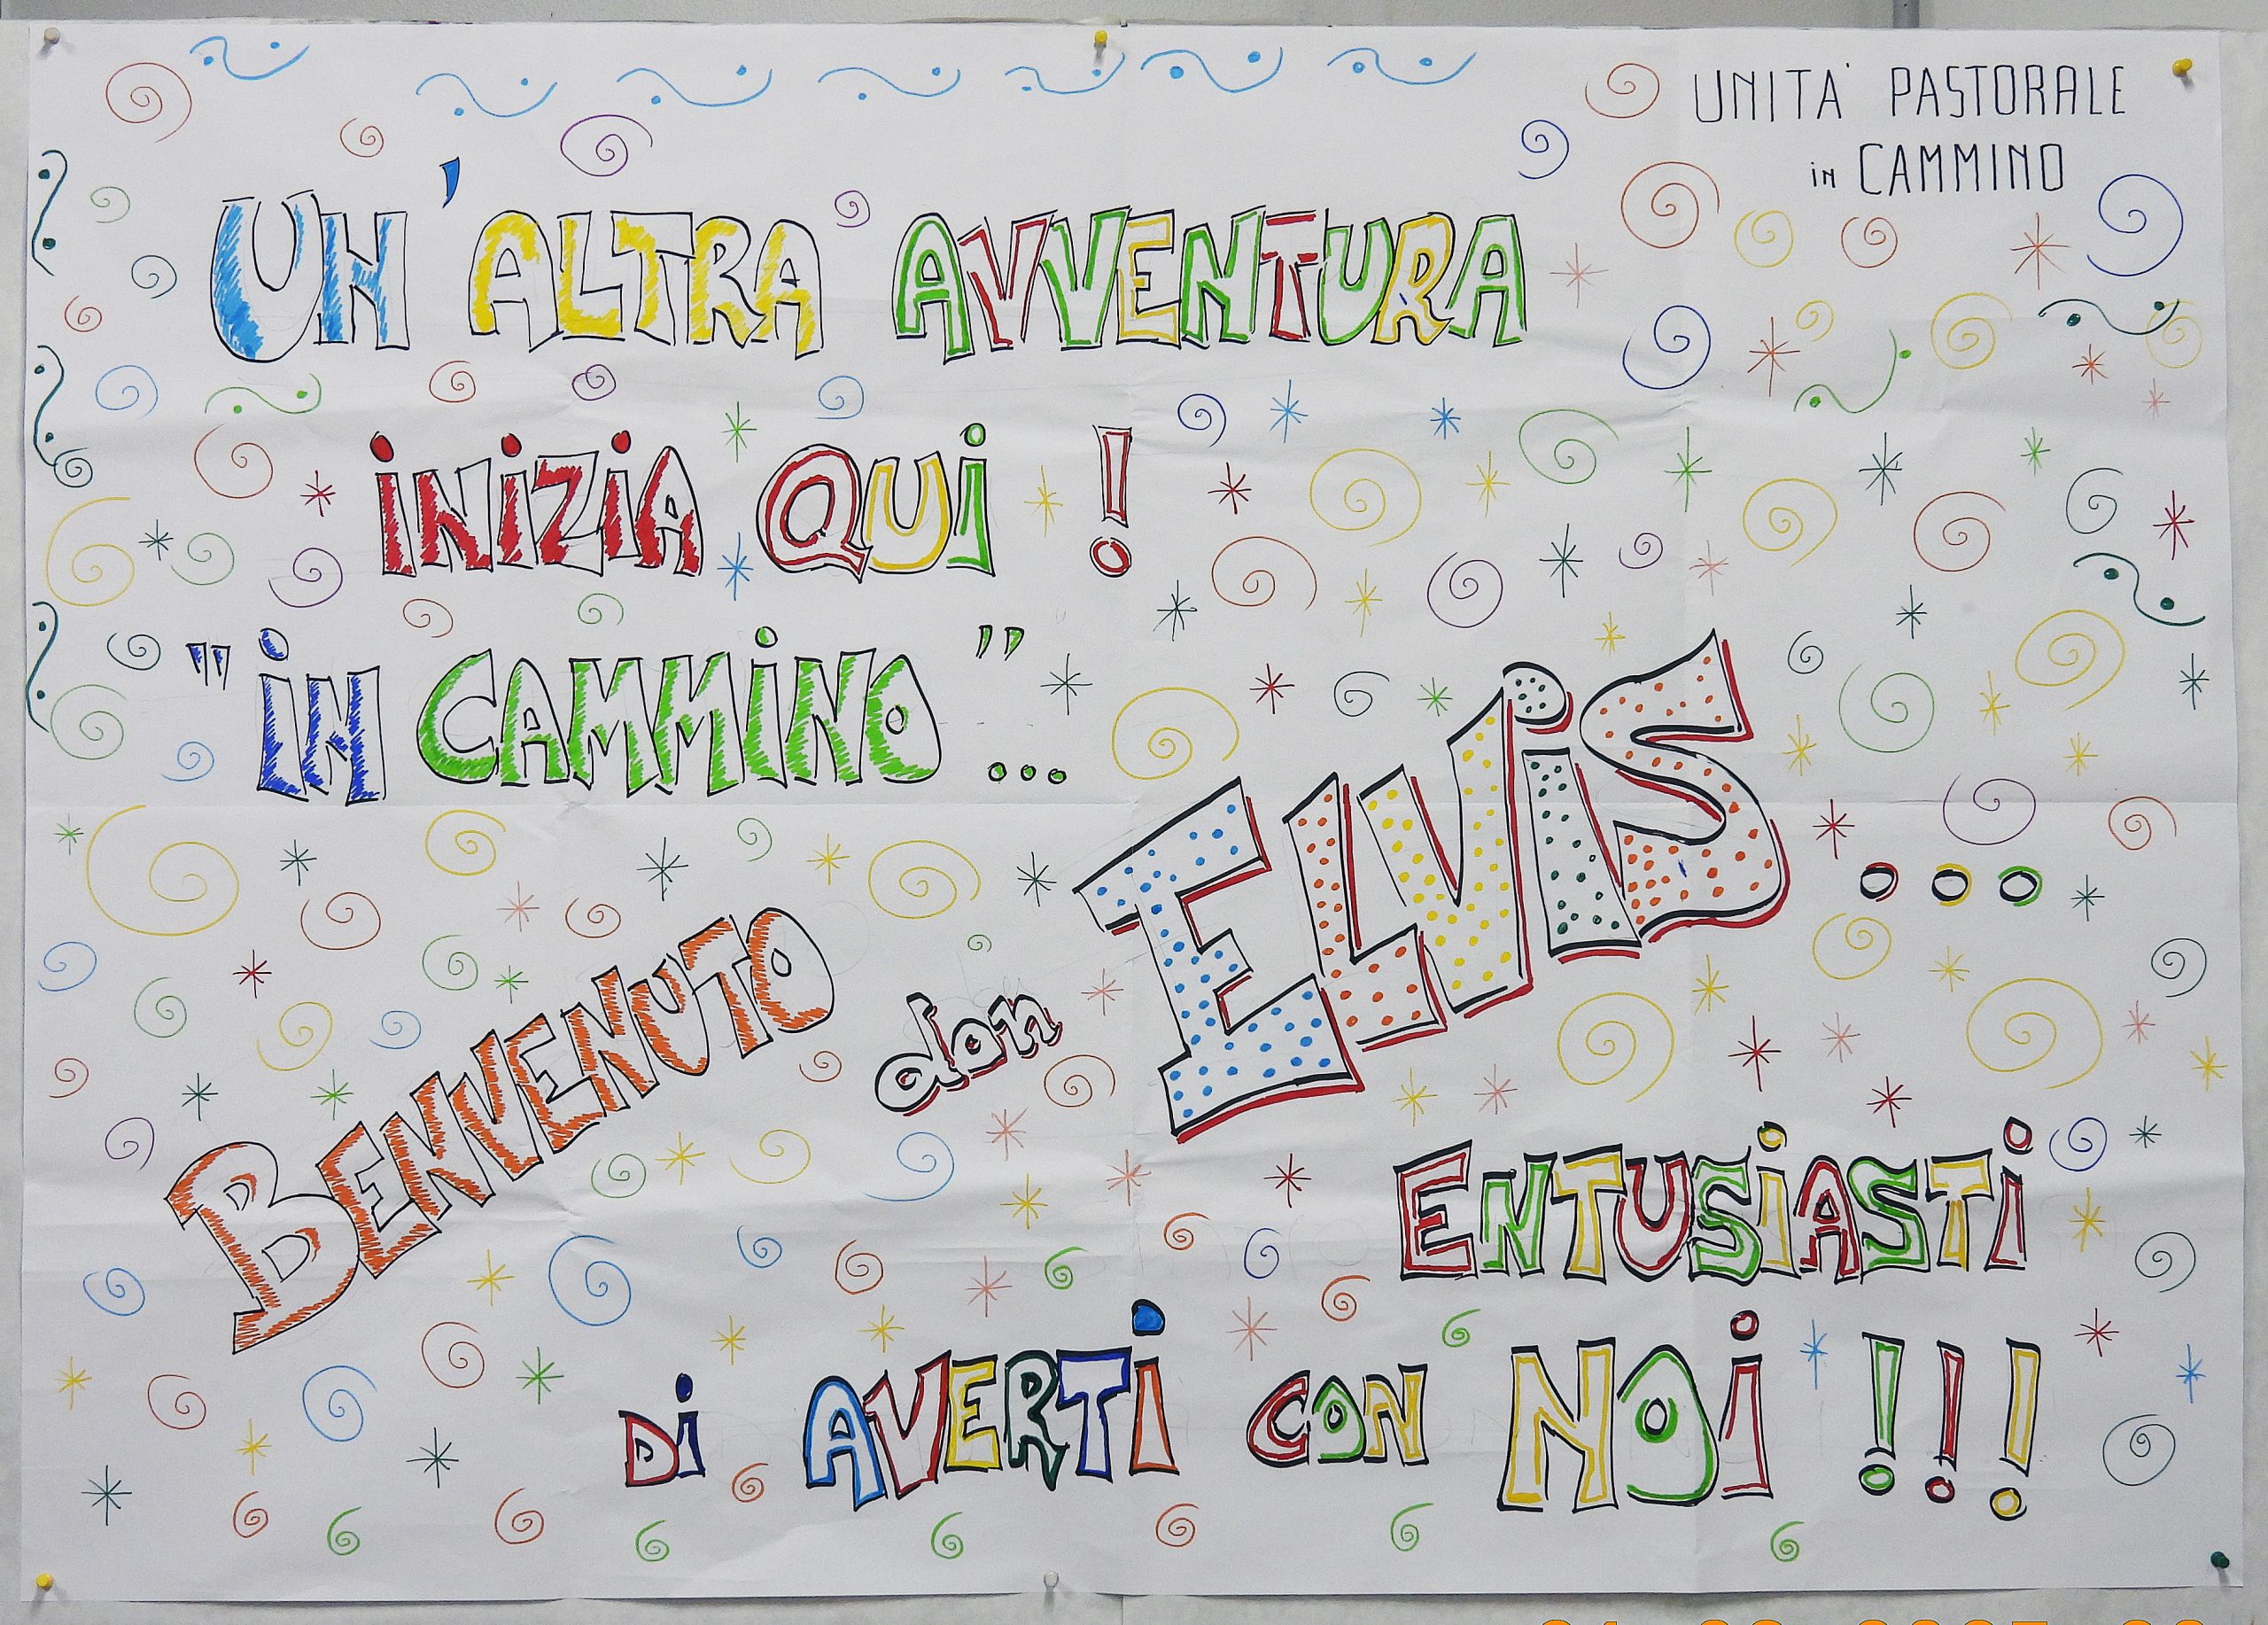 UNITA' PASTORALE
in CAMMINO
UN'ALTRA AVVENTURA
iNiZiA QUi !
"iN CAMMiNO" ...
BENVENUTO don ELViS ...
ENTUSiASTi
Di AVERTi CON NOi !!!